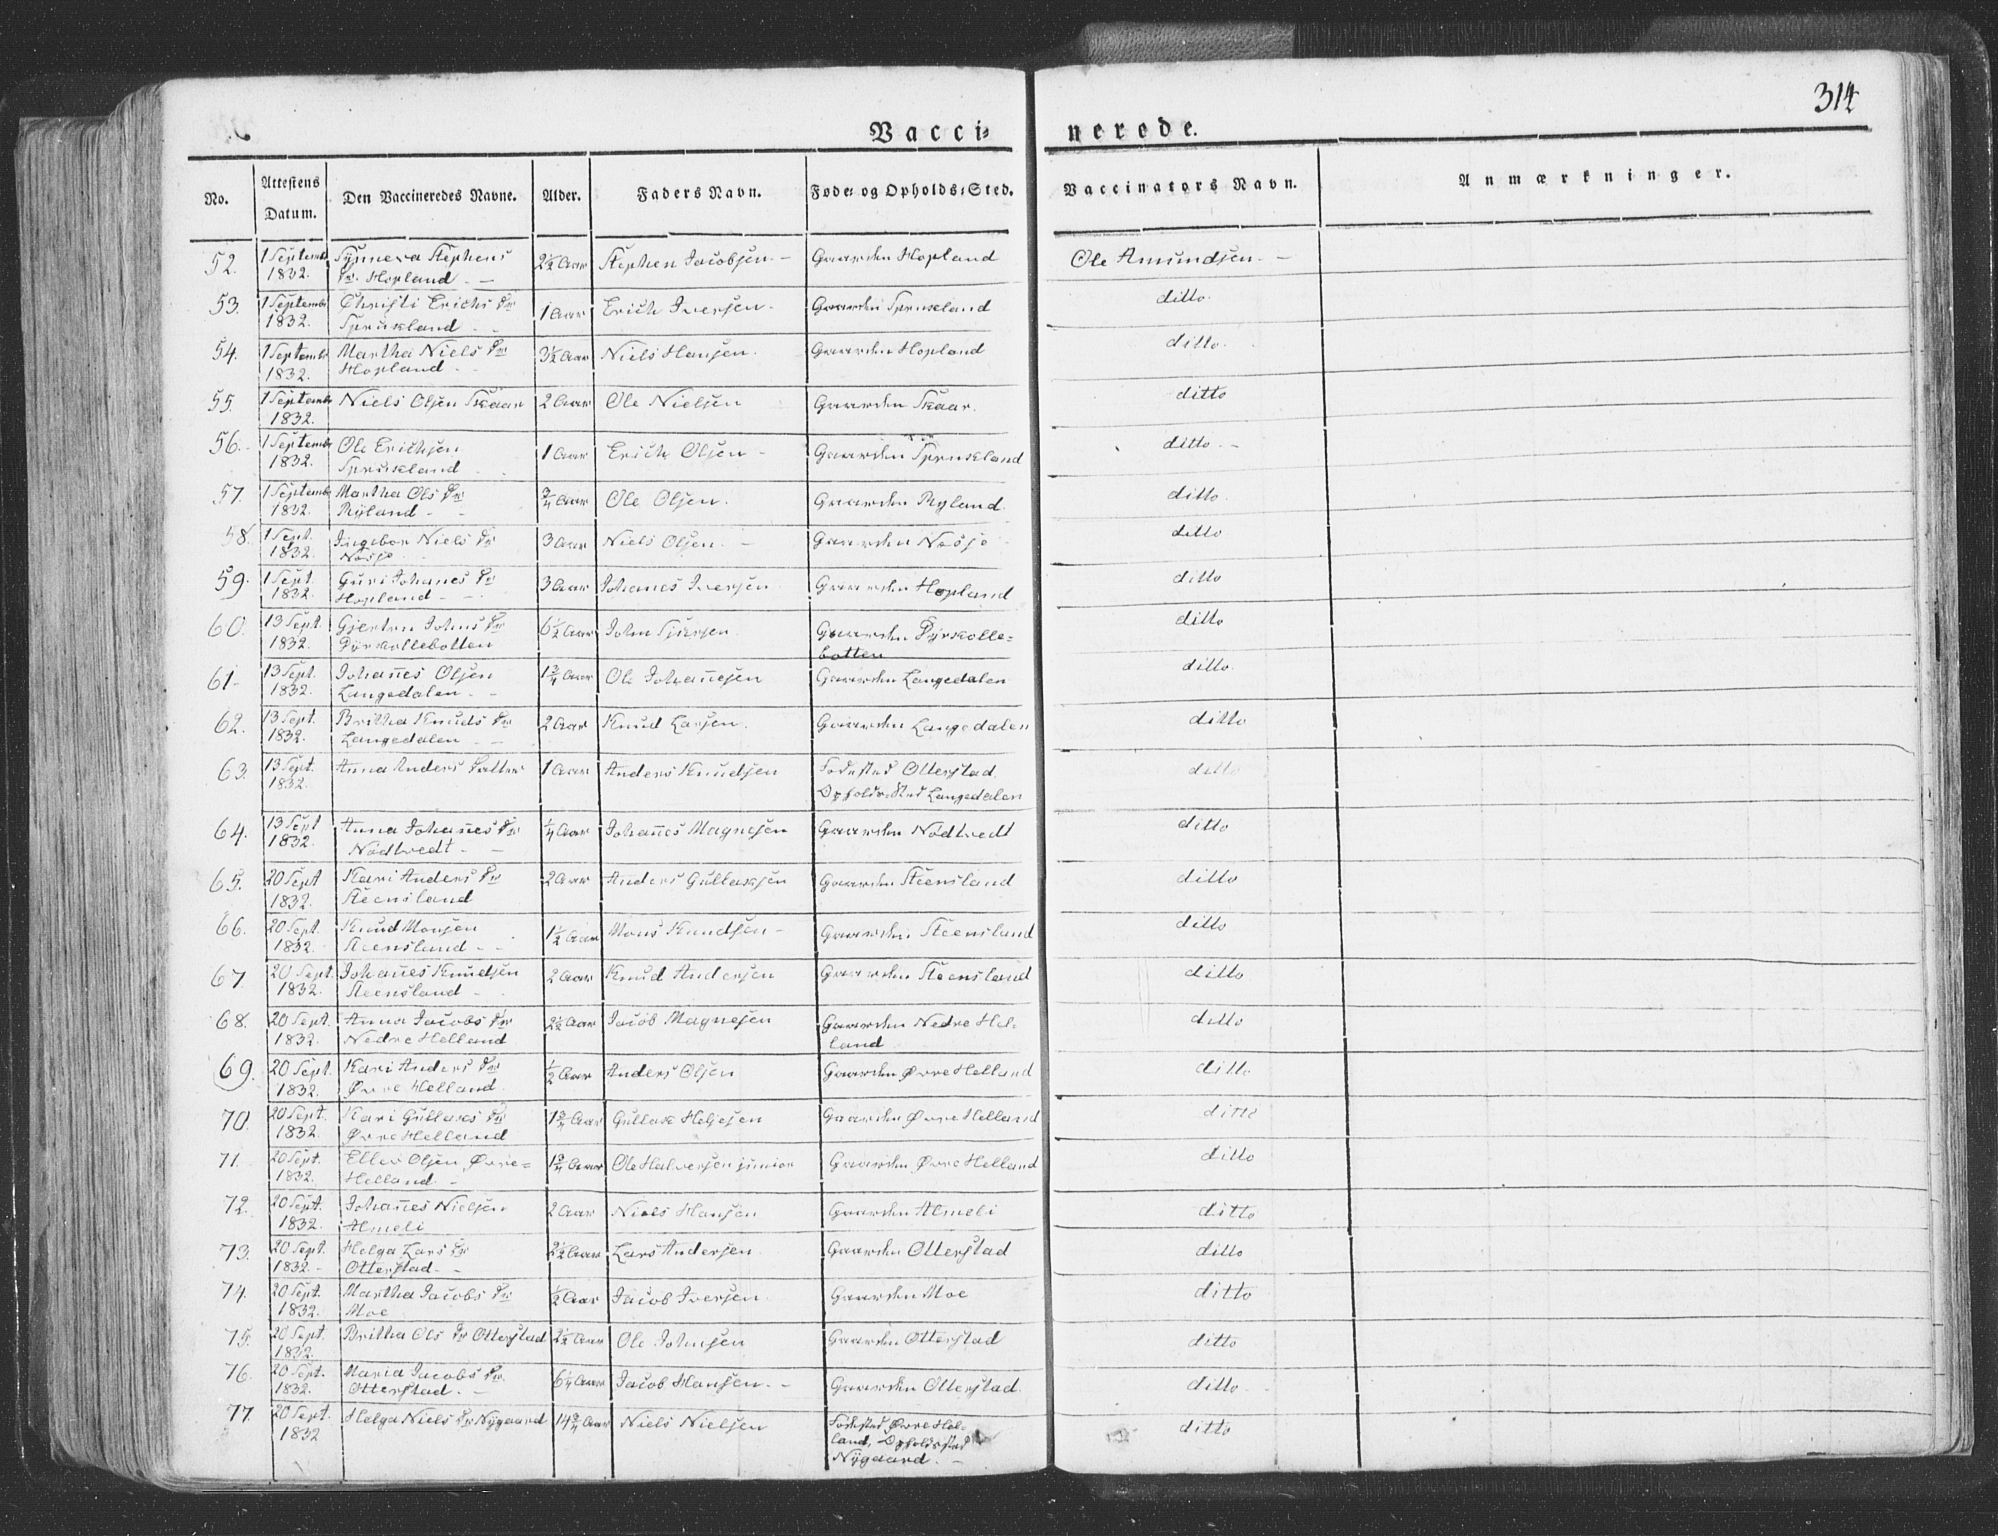 314
Vacci= nerede.
No. Attestens Datum. Den Vaccineredes Navne. Alder. Faders Navn. Føde= og Opholds=Sted. Vaccinators Navn. Anmærkninger.
52. 1 Septembr Synneva Stephens 2½ Aar Stephen Jacobsen. - Gaarden Hopland Ole Amundsen. -
1832. Dr. Hopland -
53. 1 Septembr Christi Erichs Dr 1 Aar Erich Iversen - Gaarden Sprusland ditto.
1832. Sprusland -
54. 1 Septembr Martha Niels Dr 3½ Aar Niels Hansen. Gaarden Hopland ditto.
1832. Hopland -
55. 1 Septembr Niels Olsen Skaar 2 Aar Ole Nielsen Gaarden Skaar. ditto
1832.
56. 1 Septembr Ole Erichsen 1 Aar Erich Olsen - Gaarden Sprusland ditto. -
1832. Sprusland
57. 1 Septembr Martha Ols Dr ¾ Aar Ole Olsen. Gaarden Myland ditto.
1832. Myland -
58. 1 Sept. Ingebor Niels Dr 3 Aar Niels Olsen. - Gaarden Nøsje ditto
1832. Nøsje
59. 1 Sept. Guri Johanes Dr 3 Aar Johanes Iversen Gaarden Hopland ditto
1832. Hopland -
60. 13 Sept. Gjertru Johns Dr 6½ Aar John Gaarden Dyrkolle= ditto
1832. Dyrkollebotten botten
61. 13 Sept. Johan̄es Olsen 1¾ Aar Ole Johan̄esen Gaarden Langedalen ditto.
1832. Langedalen -
62. 13 Sept. Britha Knuds Dr 2 Aar Knud Larsen. Gaarden Langedalen ditto
1832. Langedalen -
63. 13 Sept. Anna Anders Datter 1 Aar Anders Knudsen Fødested Otterstad. ditto
1832. Opholdssted Langedalen
64. 13 Sept Anna Johan̄es Dr ¼ Aar Johan̄es Magnesen Gaarden Nødtvedt ditto
1832. Nødtvedt -
65. 20 Sept Kari Anders Dr 2 Aar Anders Gullaksen Gaarden Steensland ditto
1832. Steensland
66. 20 Sept. Knud Monsen 1½ Aar Mons Knudsen - Gaarden Steensland ditto
1832. Steensland -
67. 20 Sept. Johan̄es Knudsen 2 Aar Knud Andersen Gaarden Steensland ditto
1832. Steensland -
68. 20 Sept. Anna Jacobs Dr 2½ Aar Jacob Magnesen Gaarden Nedre Hel= ditto
1832. Nedre Helland land
69. 20 Sept. Kari Anders Dr ½ Aar Anders Olsen Gaarden Øvre Helland ditto
1832. Øvre Helland.
70. 20 Sept. Kari Gullaks Dr 1¾ Aar Gullak Helgesen Gaarden Øvre Helland ditto
1832. Øvre Helland
71. 20 Sept. Elles Olsen Øvre= 1¾ Aar Ole Halvorsen junior Gaarden Øvre Helland ditto
1832. Helland. -
72. 20 Sept. Johan̄es Nielsen 2 Aar Niels Hansen Gaarden Almeli ditto
1832. Almeli
73. 20 Sept. Helga Lars Dr 2½ Aar Lars Andersen. Gaarden Otterstad ditto
1832. - Otterstad -
74. 20 Sept. Martha Jacobs Dr ½ Aar Jacob Iversen. Gaarden Moe ditto
1832. Moe
75. 20 Sept. Britha Ols Dr Otterstad 2½ Aar Ole Johnsen Gaarden Otterstad ditto
1832
76. 20 Sept. Maria Jacobs Dr. 6¼ Aar Jacob Hansen. - Gaarden Otterstad. ditto
1832. Otterstad. -
77. 20 Sept. Helga Niels Dr Nygaard 14¾ Aar Niels Nielsen Fødested Øvre Hel= ditto
1832 land, Opholdssted
Nygaard. -